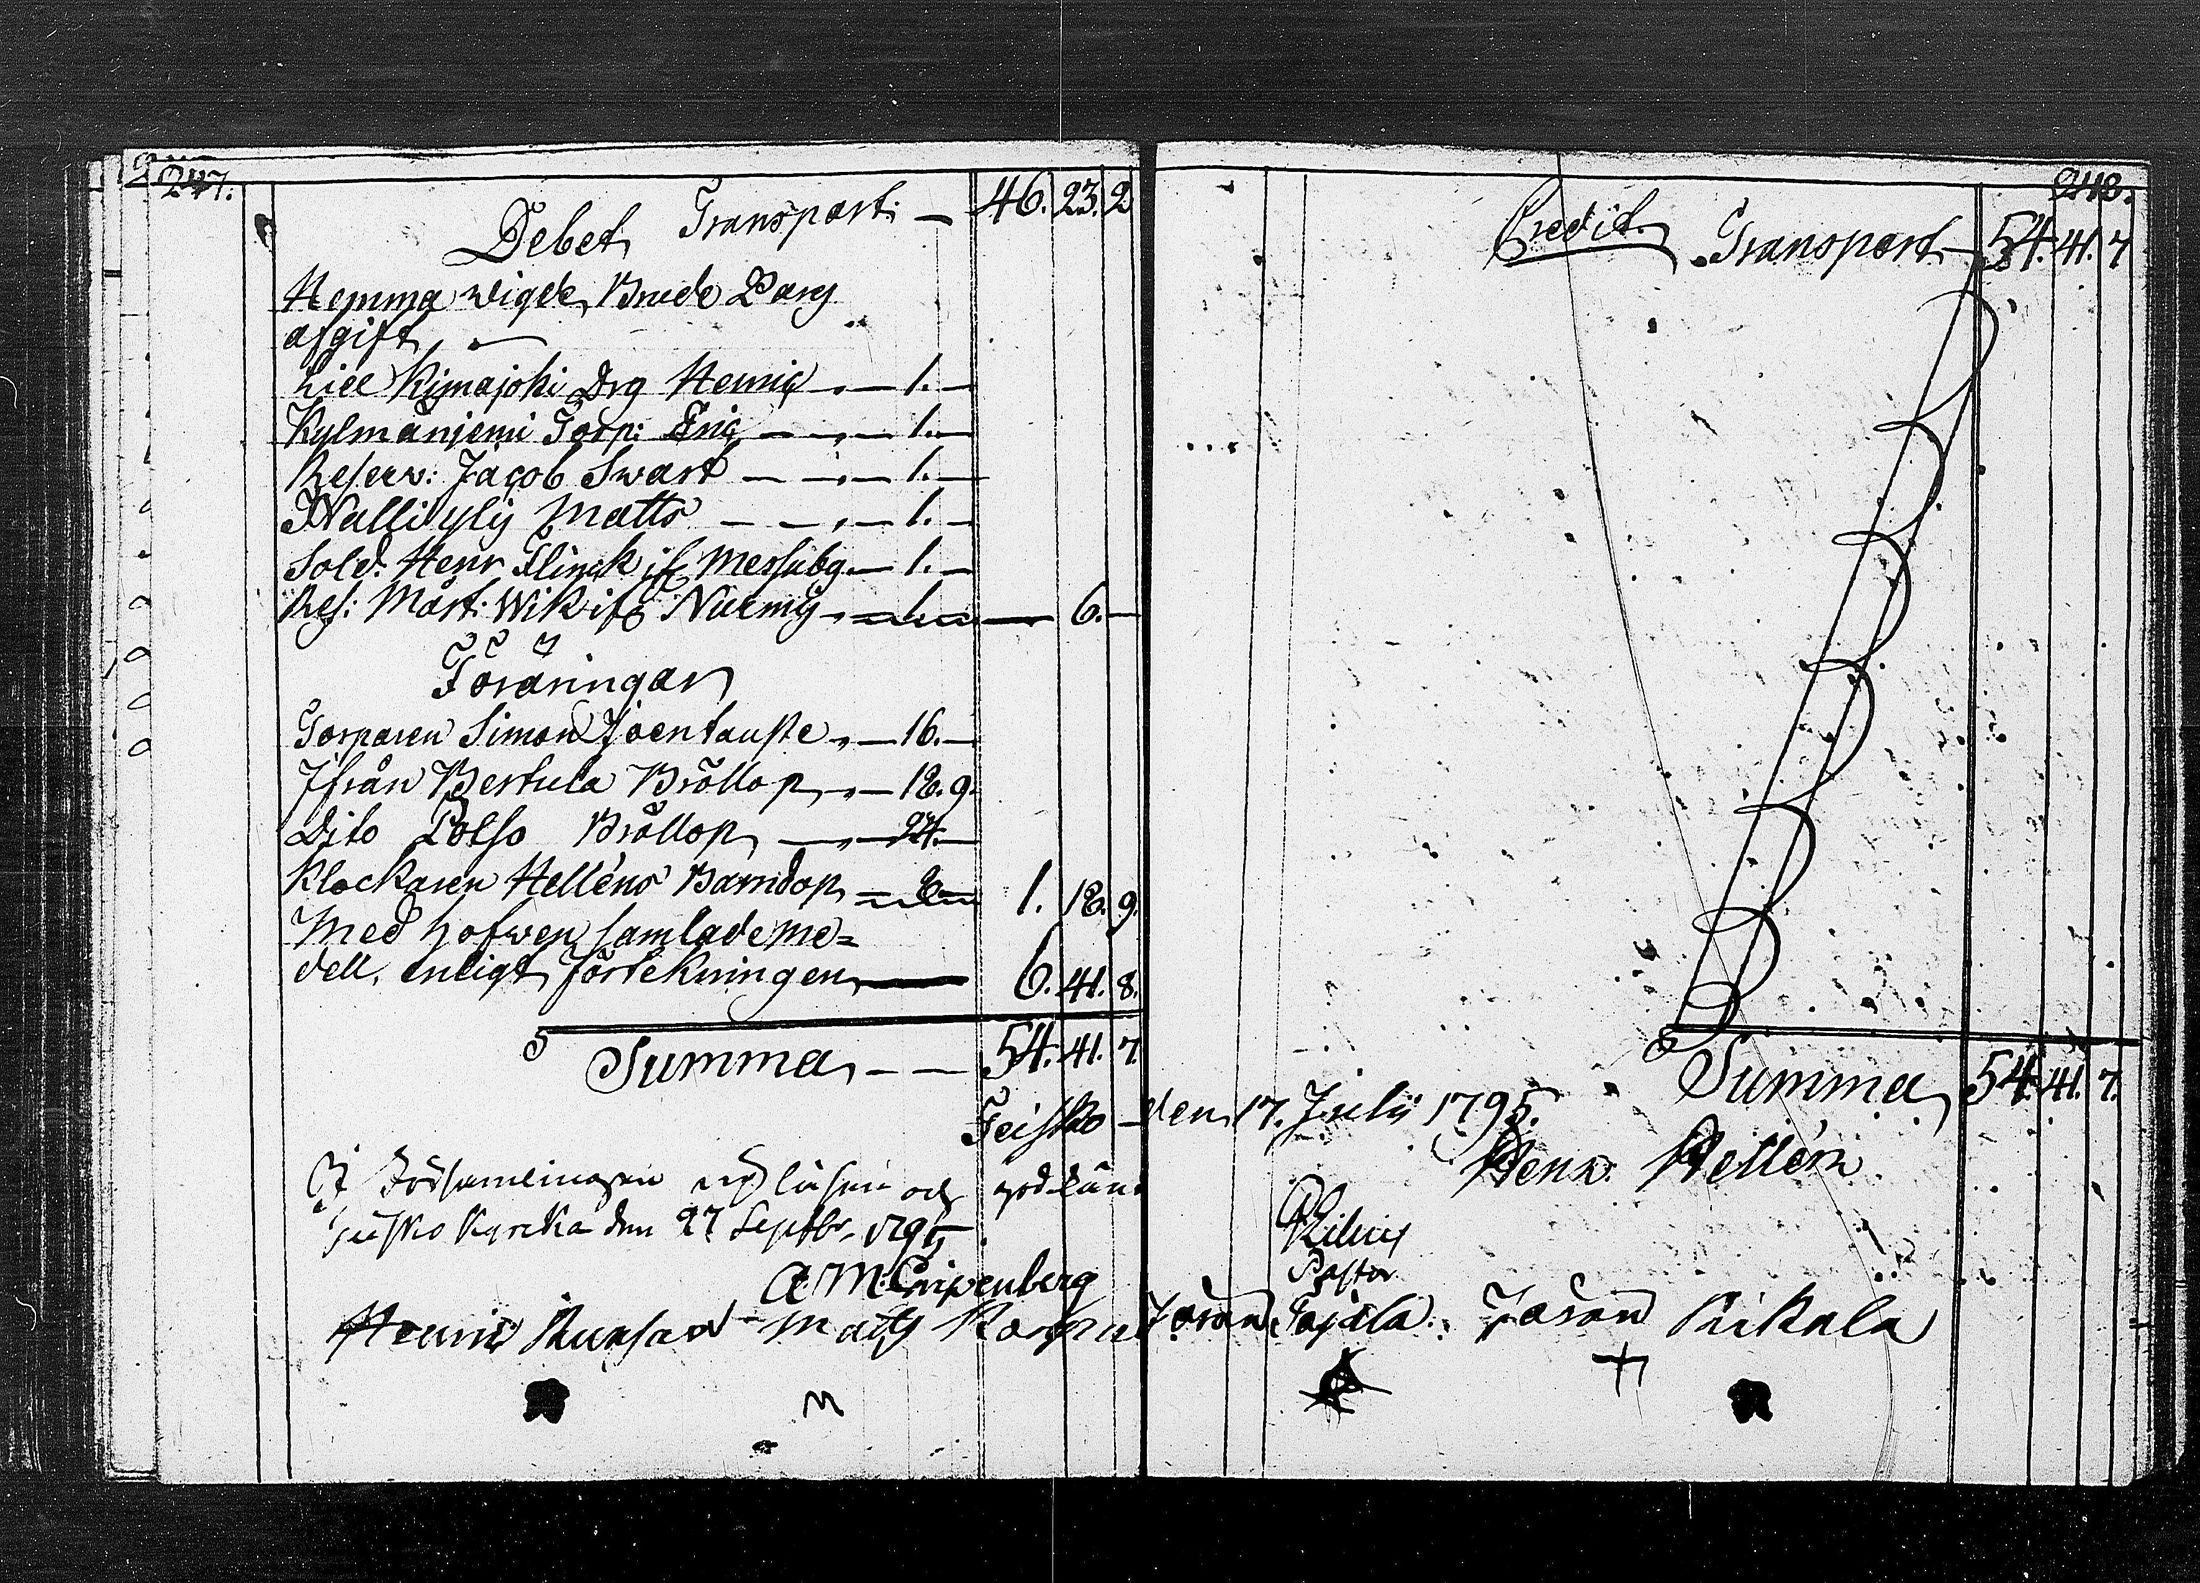 247.
Debet Transport: — 46. 23. 2
Hemma wigde Brude Pars
afgift, —
Lill Kijmajoki Drg Henric „ — 1. —
Kylmänjemi Torp: Eric — „ — 1. —
Reserv: Jacob Swart — — „ — 1. —
Wallivylij Matts — — „ — 1. —
Sold. Henr Flinck if: Messuby — 1. —
Res: Mårt: Wik if: Nurmij „ — 1. — 6. —
Föräringar
Torparen Simon Joentauste „ — 16. —
Ifrån Bertula Bröllop „ — 18. 9.
Dito Polso Bröllop — „ — 24. —
Klockaren Helléns Barndop — 8 — 1. 18. 9.
Med hofwen samlade me=
dell. enligt förtekningen — 6. 41. 8.
Summa — — 54. 41. 7
248.
Credit. Transport — 54. 41. 7
Summa 54. 41. 7.
Teisko den 17. Julij 1795.
Henr. Hellén
I Församlingen uplässen och godkänd
Teisko Kyrcka den 27 Septbr. 1795.
Pastor
A M: Cripenberg
Henric Matts Jöran Pajala. Jöran Kikala
M